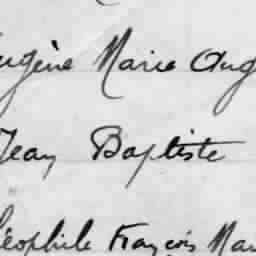 ugène Marie Aug
Jean Baptiste
éophile François Mar